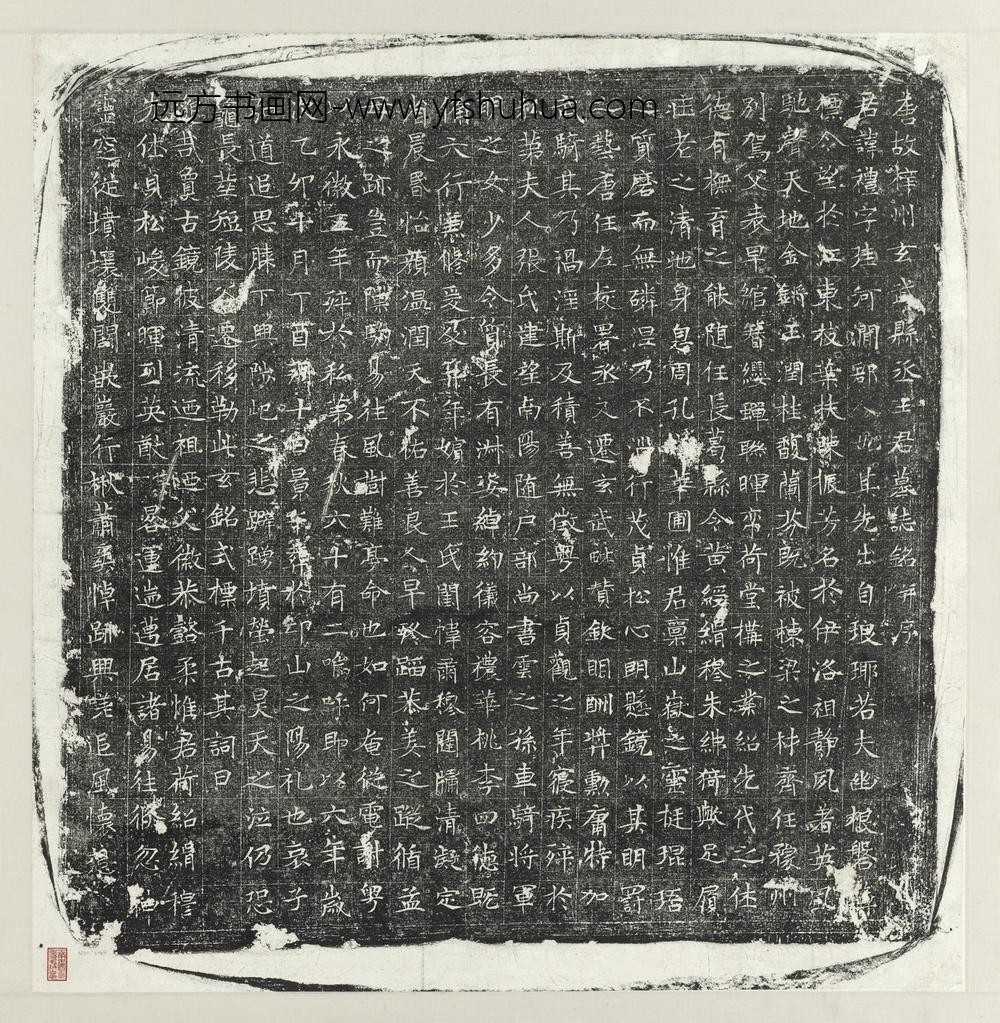 远方书画网-www.yfshuhua.com
唐故梓州玄武縣丞王君墓誌銘并序
君諱禮字 河澗 人 其先出自琅瑘若夫幽根磐
標令望於江東枝葉扶踈振芳名於伊洛祖靜夙著英風
馳聲天地金 玉潤桂馥蘭芬既被棟梁之材齊任豫州
別駕父表早綰簪纓輝聯暉 荷堂構之業紹先代之 
德有撫育之能随任長葛縣令黃綬緝穆朱紱猗歟足履
莊老之清 身 周孔 華圃惟君稟山嶽之靈挺琨珸
質磨而無磷涅乃不淄行茂貞松心明懸鏡以其明罸
藝唐任左校署丞又遷玄武 贊欽明酬 勲庸特加
騎其乃禍淫斯及積善無徵粤以貞觀之年寢疾殞於
第夫人張氏望南陽随户部尚書雲之孫車騎將軍
之女少多令質長有淋姿綽約儀容禯華桃李四德既
六行兼修爰及笄年嬪於王氏閨幃肅穆閫牖清凝定
晨昬怡顔温潤天不祐善良人早終蹈恭姜之蹤循孟
之跡豈而隟駒易往風樹難亭命也如何奄從電謝粤
永徽五年殞於私第春秋六十有二嗚呼即以六年歲
乙卯十月丁酉朔十 日景 葬於邙山之陽礼也哀子
道追思陟屺之悲躃踴墳塋起昊天之泣仍恐
長莖短陵谷遷移勒此玄銘式標千古其詞曰
猗哉負古鏡彼清流迺祖迺父徽恭懿柔惟君荷紹緝穆
仕貞松峻節暉列英猷 晷運遄邁居諸易往倏忽
靈空從墳壤雙闔嵌巖行楸蕭 悼跡興 追風懷